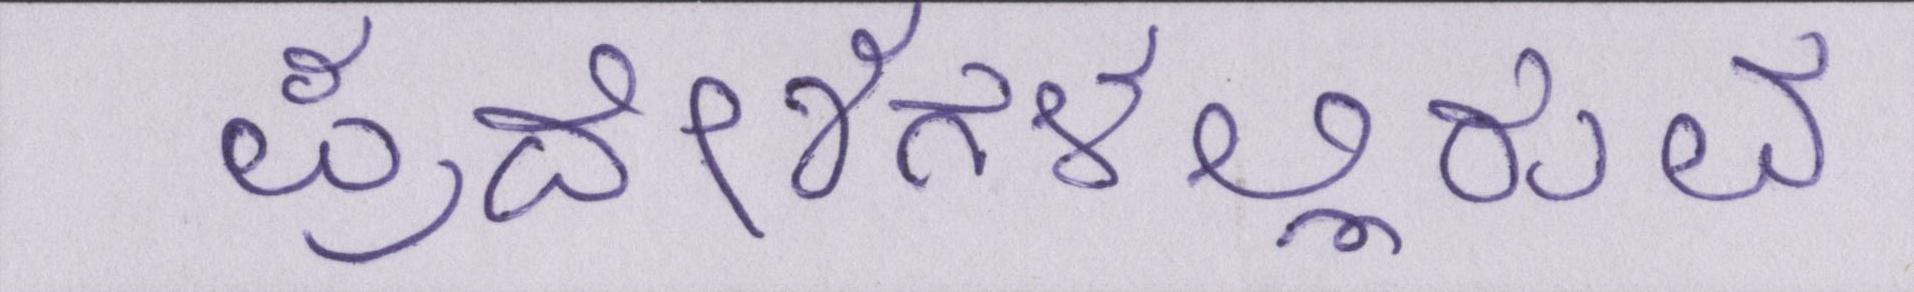 ಪ್ರದೇಶಗಳಲ್ಲಿರುವ